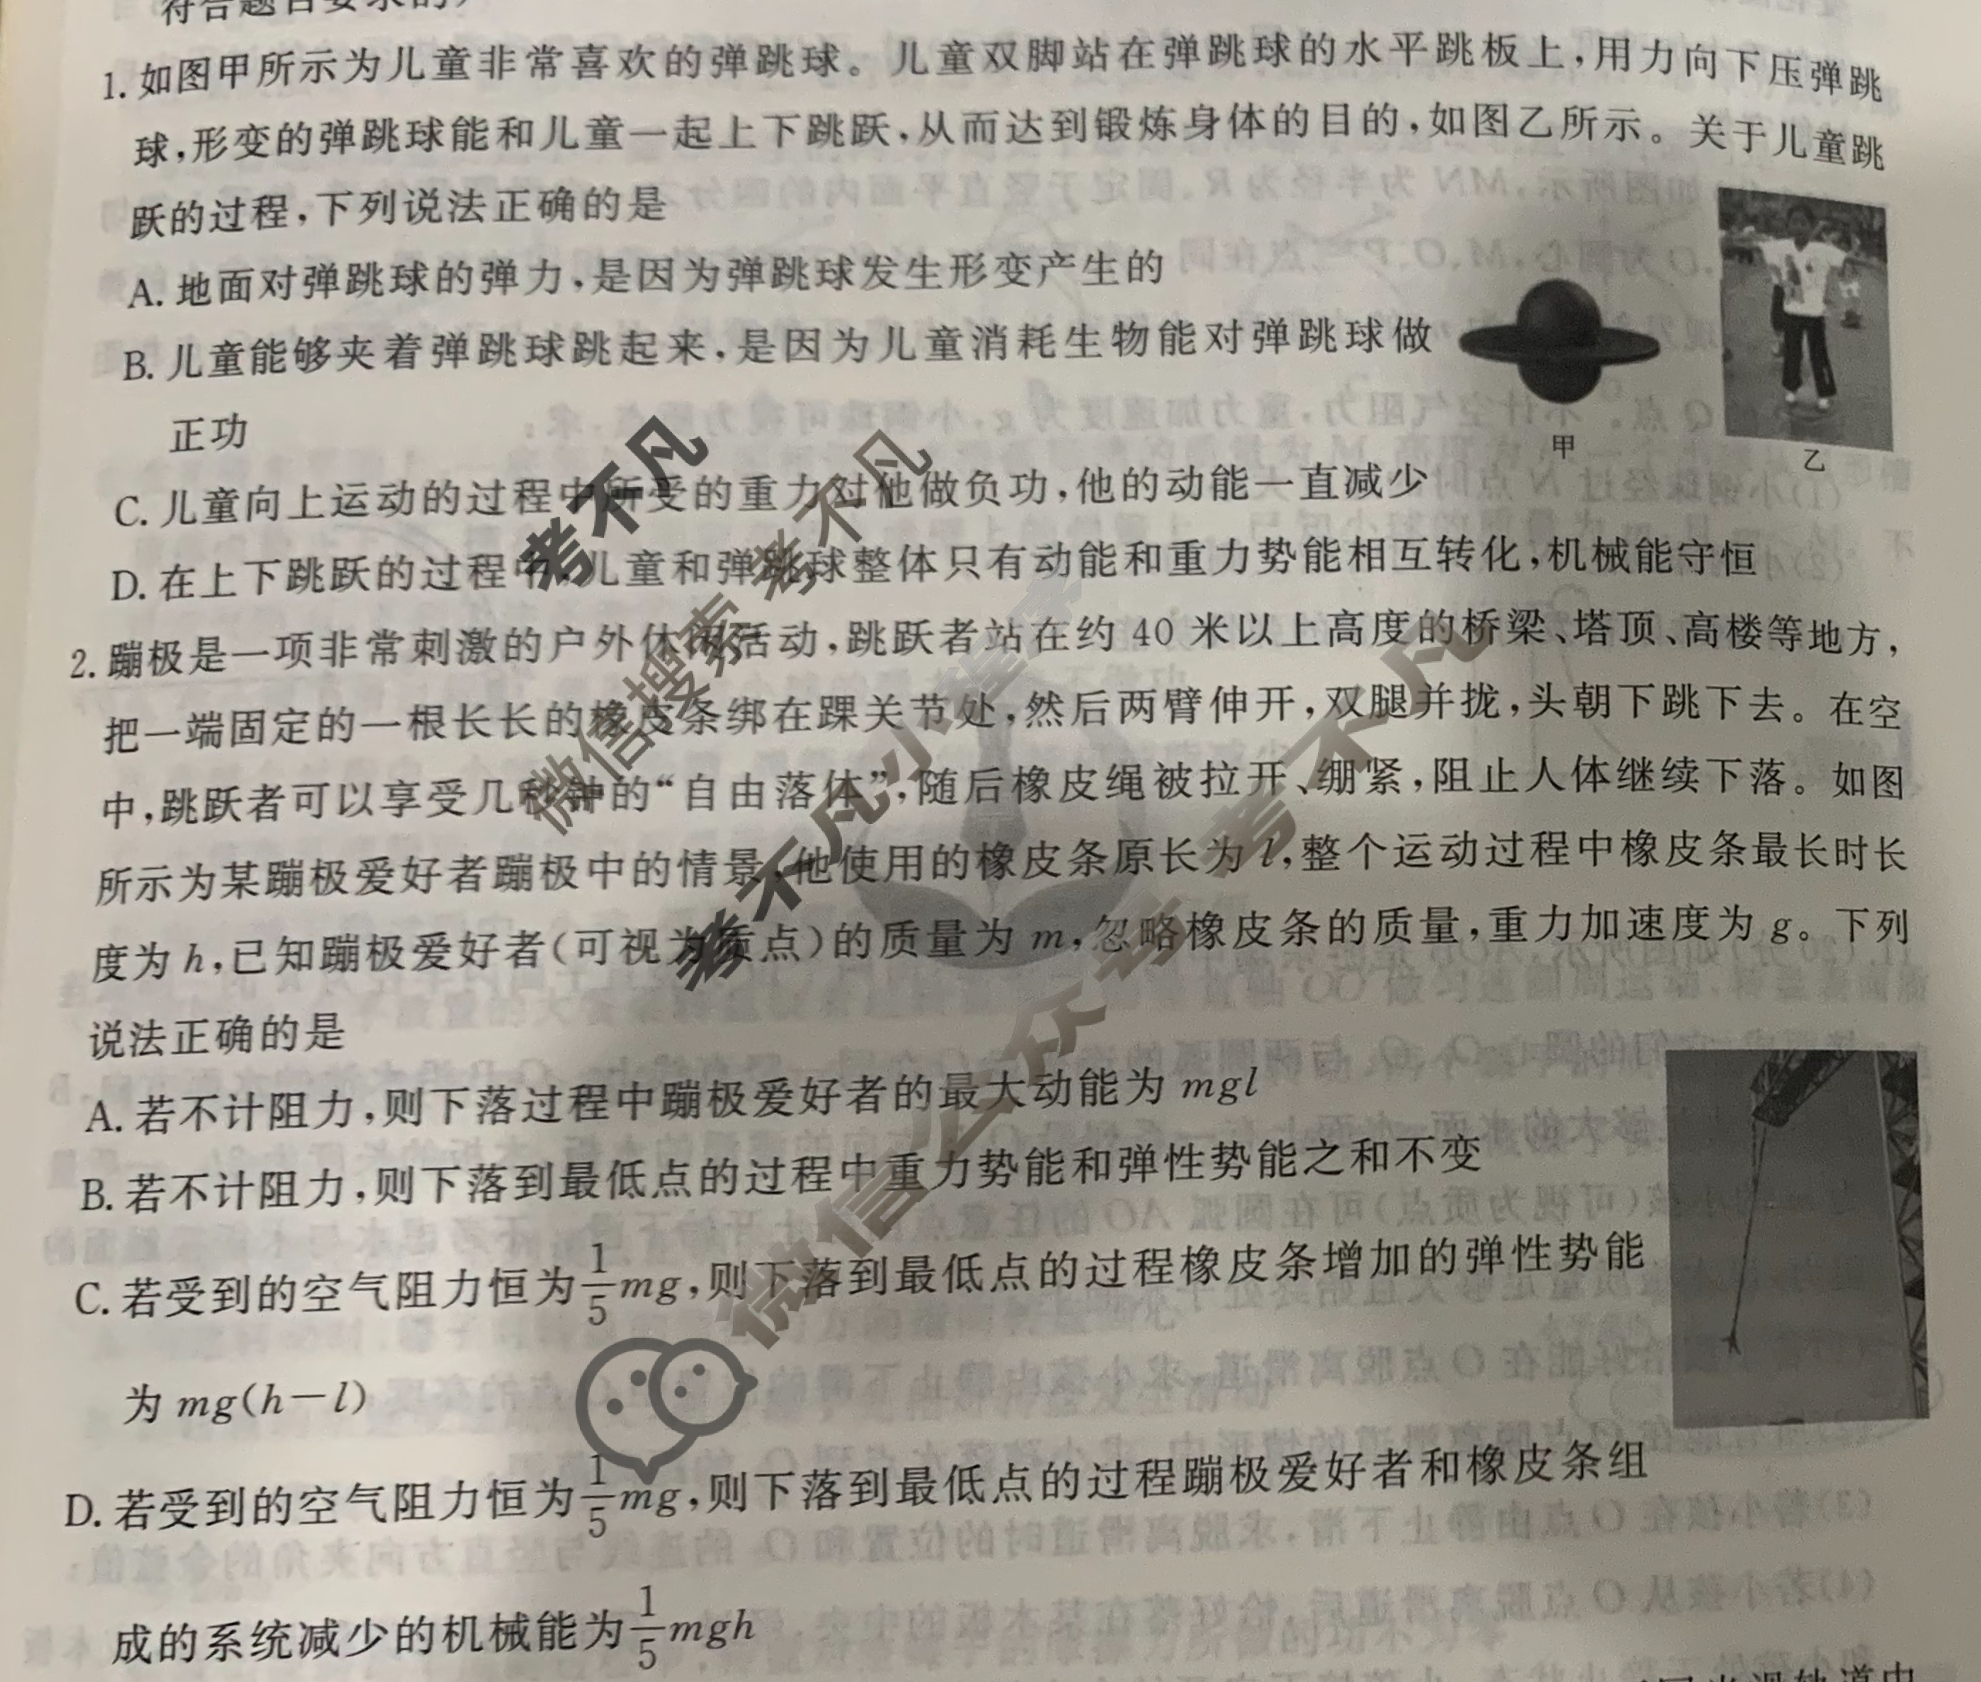 符合题目要求的)
1. 如图甲所示为儿童非常喜欢的弹跳球。儿童双脚站在弹跳球的水平跳板上,用力向下压弹跳
球,形变的弹跳球能和儿童一起上下跳跃,从而达到锻炼身体的目的,如图乙所示。关于儿童跳
跃的过程,下列说法正确的是
A. 地面对弹跳球的弹力,是因为弹跳球发生形变产生的
B. 儿童能够夹着弹跳球跳起来,是因为儿童消耗生物能对弹跳球做
正功
甲
乙
C. 儿童向上运动的过程中所受的重力对他做负功,他的动能一直减少
D. 在上下跳跃的过程中,儿童和弹跳球整体只有动能和重力势能相互转化,机械能守恒
2. 蹦极是一项非常刺激的户外休闲活动,跳跃者站在约 40 米以上高度的桥梁、塔顶、高楼等地方,
把一端固定的一根长长的橡皮条绑在踝关节处,然后两臂伸开,双腿并拢,头朝下跳下去。在空
中,跳跃者可以享受几秒钟的“自由落体”,随后橡皮绳被拉开、绷紧,阻止人体继续下落。如图
所示为某蹦极爱好者蹦极中的情景,他使用的橡皮条原长为 l,整个运动过程中橡皮条最长时长
度为 h,已知蹦极爱好者(可视为质点)的质量为 m,忽略橡皮条的质量,重力加速度为 g。下列
说法正确的是
A. 若不计阻力,则下落过程中蹦极爱好者的最大动能为 mgl
B. 若不计阻力,则下落到最低点的过程中重力势能和弹性势能之和不变
C. 若受到的空气阻力恒为 1/5 mg,则下落到最低点的过程橡皮条增加的弹性势能
为 mg(h-l)
D. 若受到的空气阻力恒为 1/5 mg,则下落到最低点的过程蹦极爱好者和橡皮条组
成的系统减少的机械能为 1/5 mgh
考不凡
微信搜索 考不凡
考不凡小程序
微信公众号：考不凡